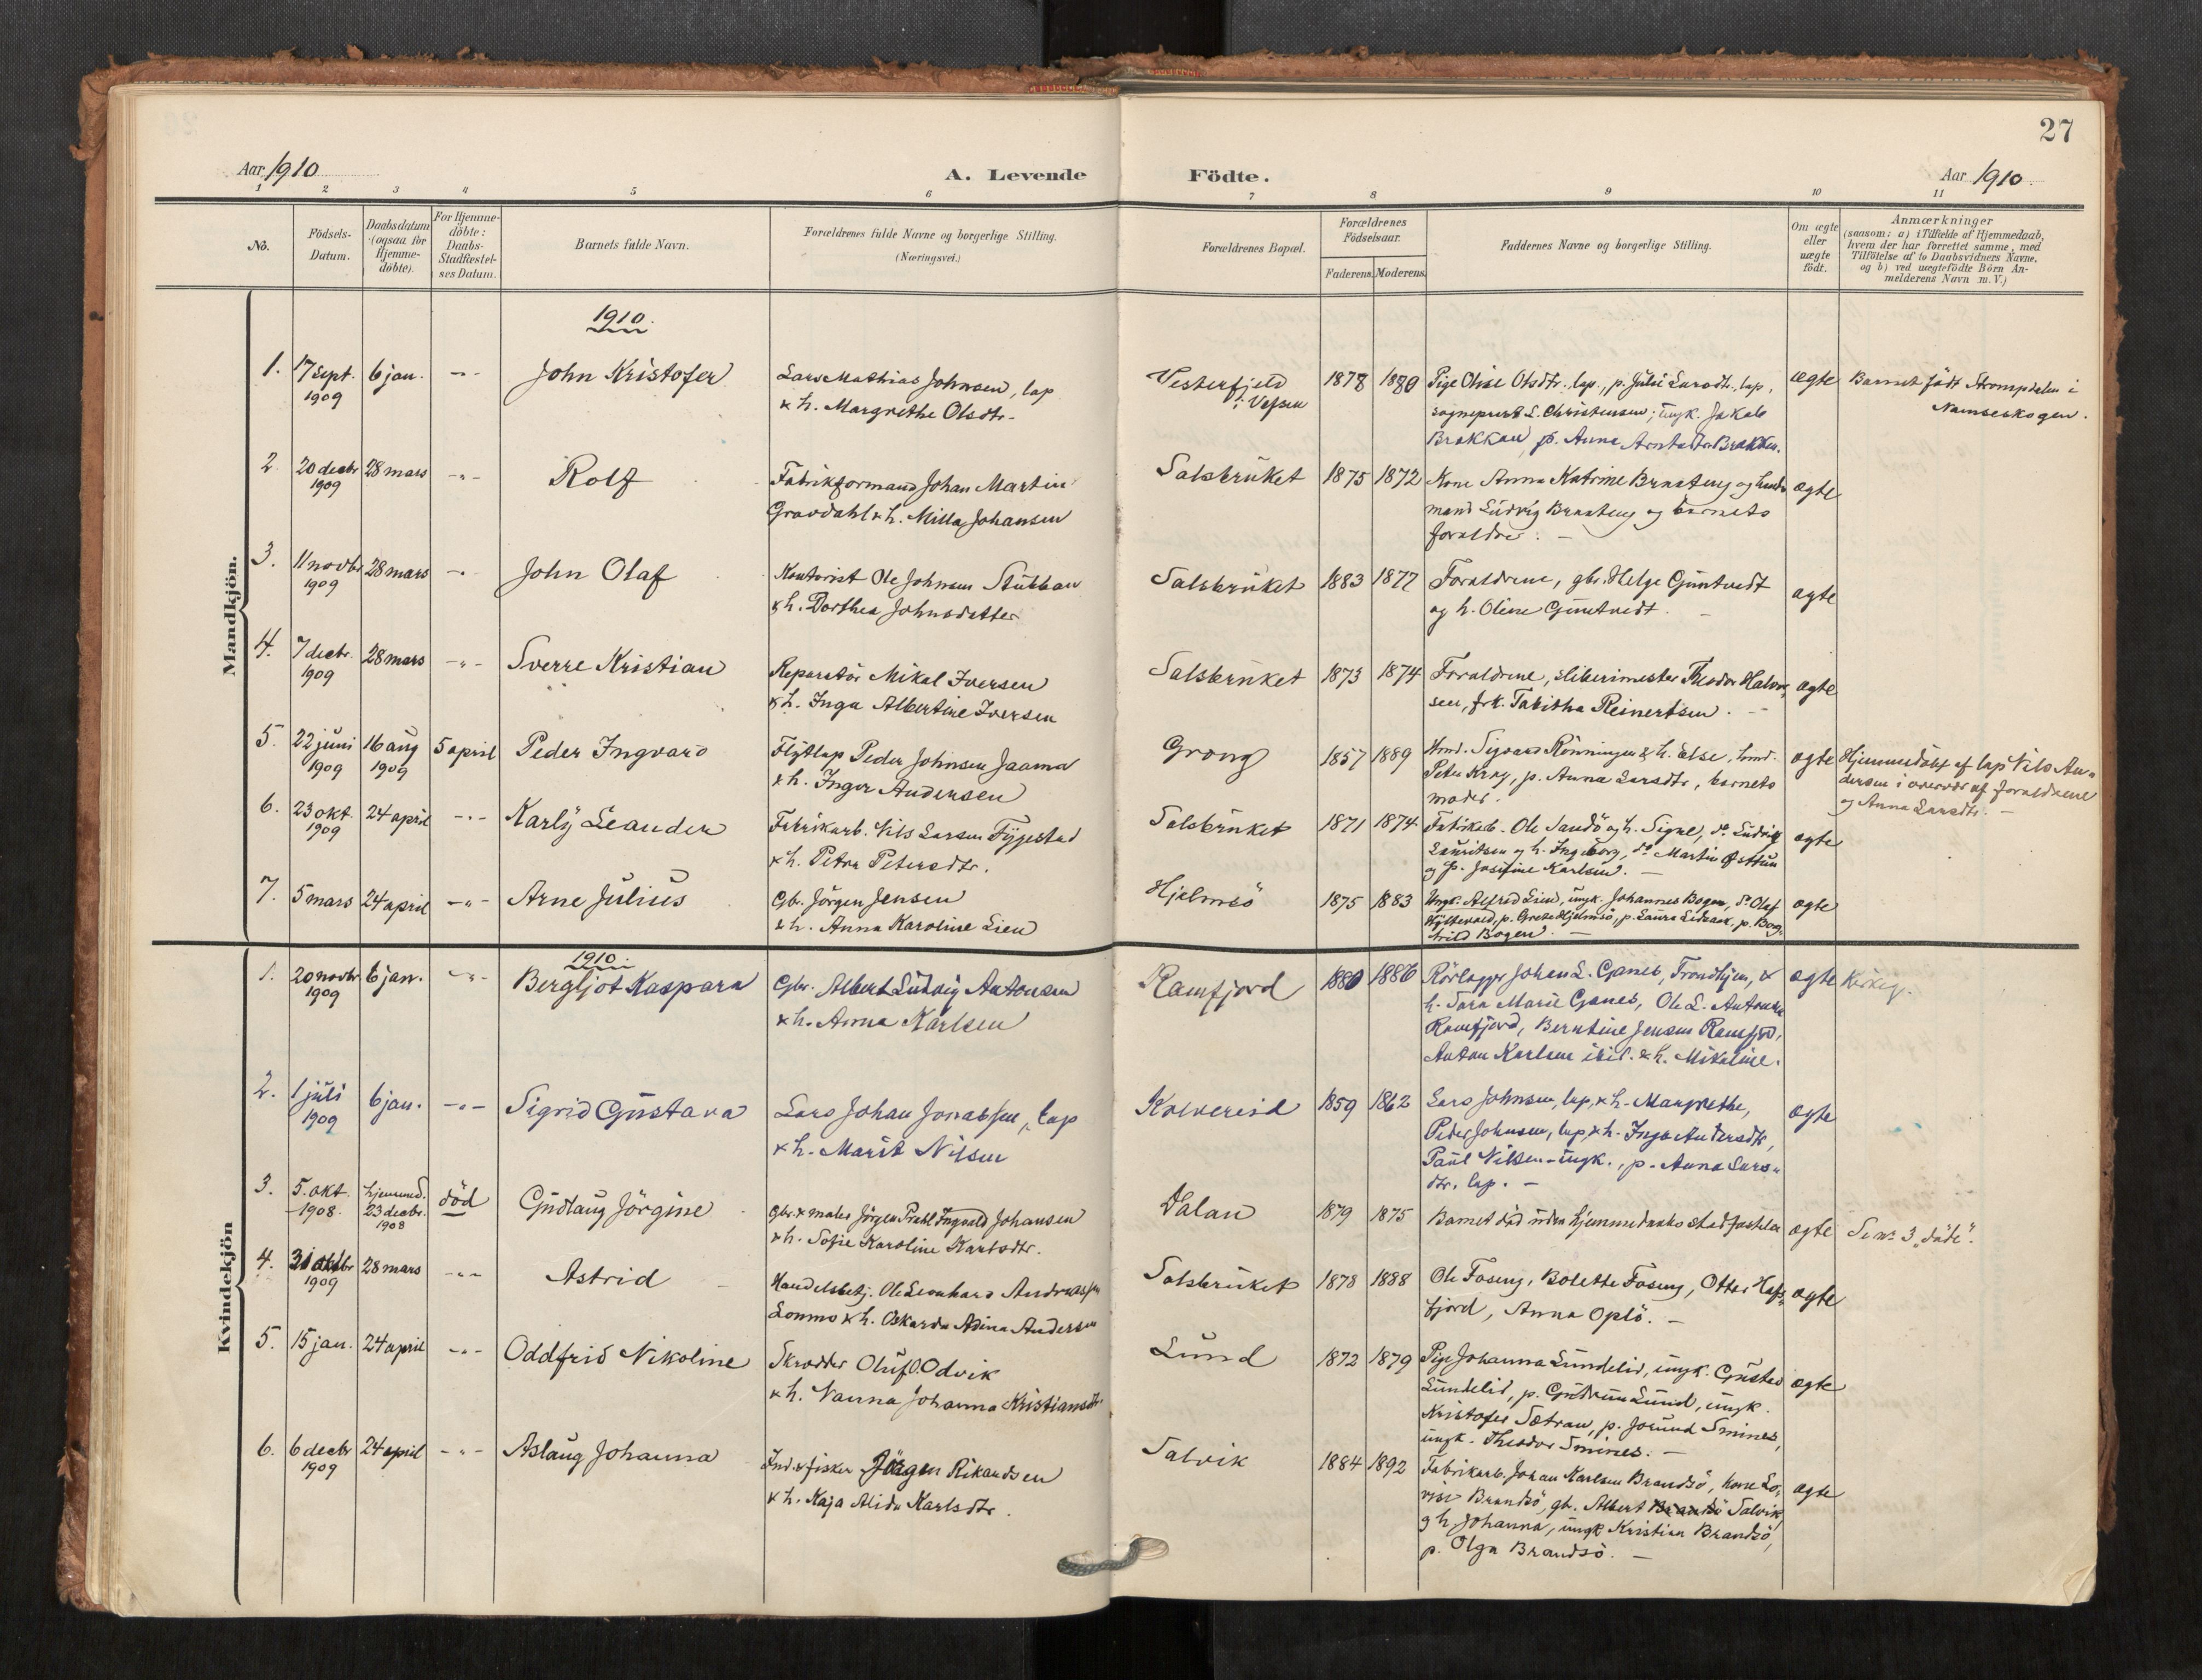 27
Aar 1910
A. Levende Födte.
Aar 1910.
1 2 3 4 5 6 7 8 9 10 11
No.
Födsels-
Datum.
Daabsdatum
(ogsaa for
Hjemme-
döbte).
For Hjemme-
döbte:
Daabs-
Stadfæstel-
ses Datum.
Barnets fulde Navn.
Forældrenes fulde Navne og borgerlige Stilling.
(Næringsvei.)
Forældrenes Bopæl.
Forældrenes
Födselsaar.
Faderens. Moderens.
Faddernes Navne og borgerlige Stilling.
Om ægte
eller
uægte
födt.
Anmærkninger
(saasom: a) i Tilfælde af Hjemmedaab,
hvem der har forrettet samme, med
Tilföielse af to Daabsvidners Navne,
og b) ved uægtefödte Börn An-
melderens Navn m. V.)
Mandkjön.
1910.
1. 17 sept. 1909 6 jan. -"- John Kristofer
Lars Mathias Johnsen, lap
& h. Margrethe Olsdtr.
Vesterfjeld
i Vefsen
1878 1880
Pige Olise Olsdtr. lap., p. Julie Larsdtr. lap,
sogneprest L. Christensen; ungk. Jakob
Brækkan, p. Anna Brækkan.
ægte
Barnet födt Strompdalen i
Namsskogen.
2 20 decbr 1909 28 mars -"- Rolf
Fabrikformand Johan Martin
Gravdahl & h. Milla Johansen
Salsbruket 1875 1872
Kone Anna Katrine Braateng og
mand Ludvig Braateng og barnets
forældre. -
ægte
3. 11 novbr 1909 28 mars -"- John Olaf
Kontorist Ole Johnsen Stubban
& h. Dorthea Johnsdatter
Salsbruket 1883 1877
Forældrene, gbr. Helge Guntvedt
og h. Oline Guntvedt. -
ægte
4. 7 decbr. 1909 28 mars -"- Sverre Kristian
Reparatör Mikal Iversen
& h. Inga Albertine Iversen
Salsbruket 1873 1874
Forældrene, sliberimester Theodor Halvor-
sen, frk. Tabitha Reinertsen. -
ægte
5. 22 juni 1909 16 aug 1909 5 april Peder Ingvard
Flytlap Peder Johnsen Jaama
& h. Inger Andersen
Grong 1857 1889
Hmd. Sigvard Rönningen & h. Else, hmd.
Peter Krag, p. Anna Larsdtr, barnets
moder.
ægte
Hjemmedöbt af lap Nils An-
dersen i overvær af forældrene
og Anna Larsdtr. -
6. 23 okt. 1909 24 april -"- Karly Leander
Fabrikarb. Nils Larsen Fyjestad
& h. Petra Petersdtr.
Salsbruket 1871 1874
Fabrikarb. Ole Sandö og h. Signe, do. Ludvig
Lauritsen og h. Ingeborg, do Martin Østtun
og p. Josefine Karlsen. -
ægte
7. 5 mars 24 april -"- Arne Julius
Gb. Jörgen Jensen
& h. Anna Karoline Lien
Hjelmsö 1875 1883
Ungk. Alfred Lien, ungk. Johannes Bogen, do Olaf
p. Grete Hjelmsö, p. Laura p. Bog-
hild Bogen. -
ægte
Kvindekjön
1910.
1. 20 novbr 1909 6 jan. -"- Bergljot Kaspara
Gbr. Albert Ludvig Antonsen
& h. Anna Karlsen
Ramfjord 1880 1886
Rörlægger Johan L. Ganes, Trondhjem, &
h. Sara Marie Ganes, Ole L. Antonsen
Ramfjord, Berntine Jensen Ramfjord,
Anton Karlsen ibid. & h. Mikaline.
ægte
2. 1 juli 1909 6 jan. -"- Sigrid Gustava
Lars Johan Jonassen, lap
& h. Marit Nilsen
Kolvereid 1859 1862
Lars Johnsen, lap, & h. Margrethe,
Peder Johnsen, lap, & h. Inger Andersdtr,
Paul Nilsen ungk., p. Anna Lars-
dtr. lap. -
ægte
3. 5. okt. 1908. hjemmed. 23 decbr. 1908 död Gudlaug Jörgine
gbr. & maler Jörgen Prahl Ingvald Johansen
& h. Sofie Karoline Karlsdtr.
Valan 1879 1875
Barnet död uden hjemmedaabs stadfæstelse
ægte
Se nr 3 "döde".
4. 31 oktbr 1909 28 mars -"- Astrid
Handelsbetj. Ole Leonhard Andreassen
Lommo & h. Oskarda Adina Andersen
Salsbruket 1878 1888
Ole Foseng, Bolette Foseng, Otter Hafs-
fjord, Anna Oplö. -
ægte
5. 15 jan. 24 april -"- Oddfrid Nikoline
Skrædder Oluf O. Odvik
& h. Nanna Johanna Kristiansdtr.
Lund 1872 1879
Pige Johanna Lundelid, ungk. Gustav
Lundelid, p. Gudrun Lund, ungk.
Kristofer Sætran, p. Jorund Smines,
ungk. Theodor Smines. -
ægte
6. 6 decbr 1909 24 april -"- Aslaug Johanna
Ind. & fisker Jörgen Rikardsen
& h. Kaja Alida Karlsdtr.
Salvik 1884 1892
Fabrikarb. Johan Karlsen Brandsö, kone Lo-
vise Brandsö, gb. Albert Salvik
og h. Johanna, ungk Kristian Brandsö,
p. Olga Brandsö. -
ægte